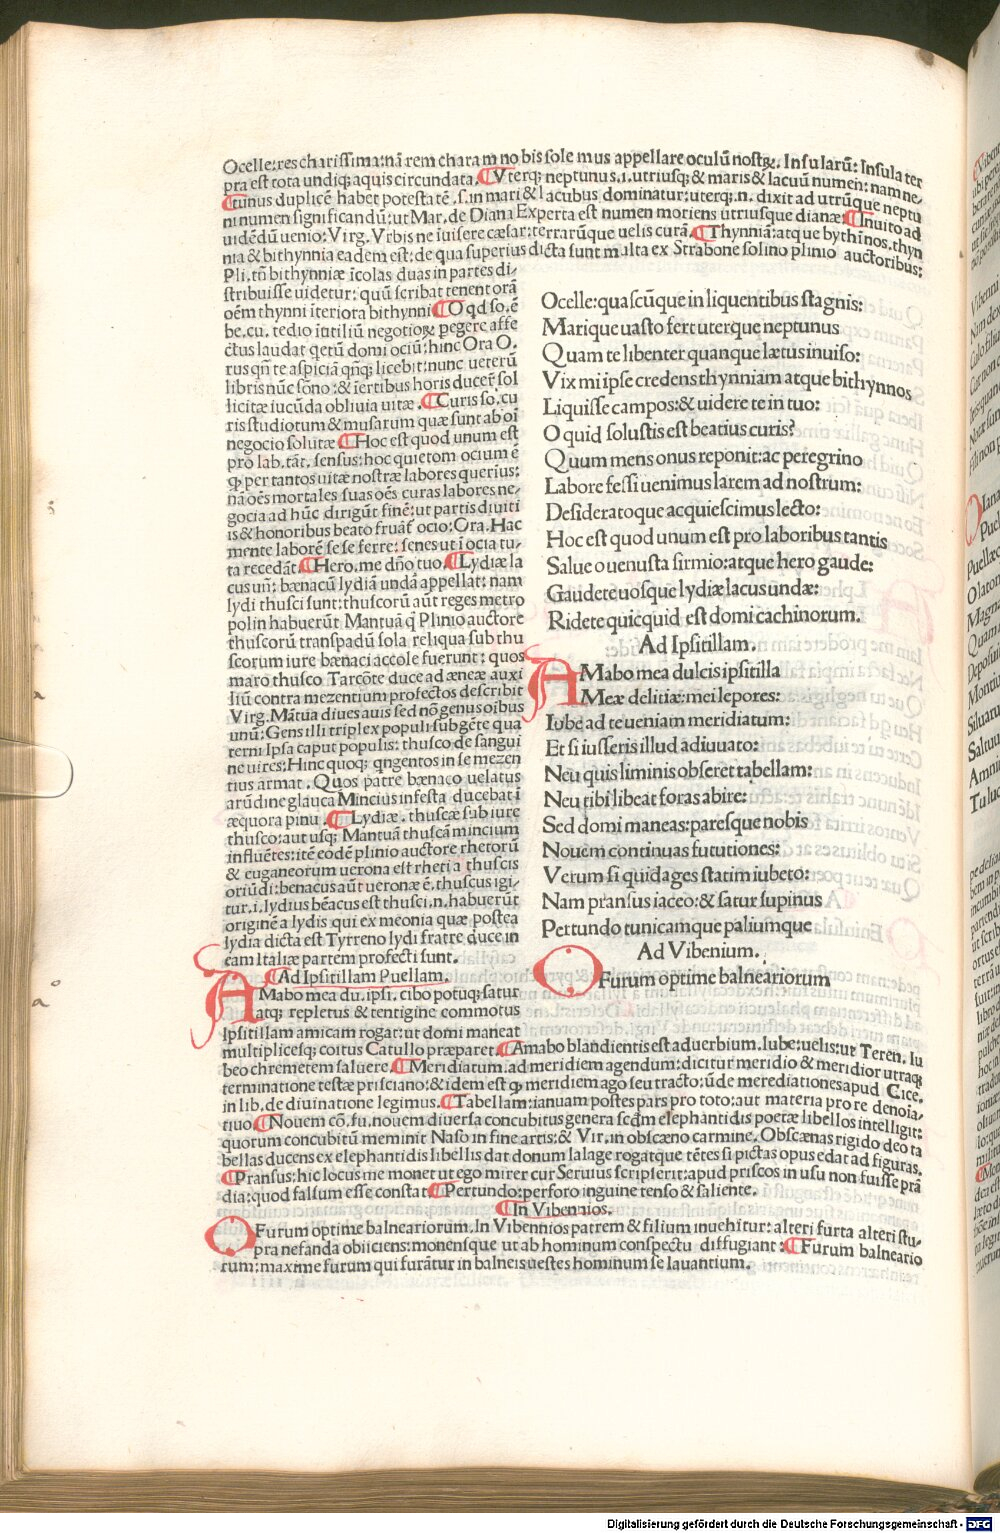 Ocelle:res charissima:nã rem charam nobis sole mus appellare oculũ nostꝝ. Insularũ: Insula ter
pra est tota undiqꝫ aquis circundata. ¶Vterqꝫ neptunus.i.utriusqꝫ & maris & lacuũ numen: nam ne,
¶tunus duplicẽ habet potestatẽ.s.in mari & lacubus dominatur:uterqꝫ.n.dixit ad utrũque neptu
ni numen significandũ: ut Mar.de Diana Experta est numen moriens utriusque dianæ: ¶Inuito ad
uidẽdũ uenio: Virg. Vrbis ne iuisere cæsar:terrarũque uelis curã. ¶Thynniã:atque bythĩnos.thyn
nia & bithynnia eadem est: de qua superius dicta sunt multa ex Strabone solino plinio auctoribus:
Pli.tñ bithynniæ ĩcolas duas in partes di/
stribuisse uidetur: quũ scribat tenent orã
oẽm thynni ĩteriora bithynni ¶O qd so.ẽ
be.cu. tedio inutiliũ negotioꝝ pegere affe
ctus laudat qetũ domi ociũ: hinc Ora O.
rus qñ te aspiciã qñqꝫ licebit: nunc ueterũ
libris nũc sõno: & ĩertibus horis ducer̃ sol
licitæ iucũda obliuia uitæ. ¶Curis so.cu
ris studiorum & musarum quæ sunt ab oĩ
negocio solutæ ¶Hoc est quod unum est
pro lab.tãt. sensus: hoc quietom ocium ẽ
qꝫ per tantos uitæ nostræ labores querius:
nã oẽs mortales suas oẽs curas labores ne/
gocia ad hũc dirigũt finẽ: ut partis diuiti
is & honoribus beato fruãt̃ ocio: Ora. Hac
mente laborẽ sese ferre: senes ut ĩ ocia tu/
ta recedãt ¶Hero.me dño tuo. ¶Lydiæ la
cus uñ: bænacũ lydiã undã appellat: nam
lydi thusci sunt: thuscorũ aũt reges metro
polin habuerũt Mantuã q̃ Plinio auctore
thuscorũ transpadũ sola reliqua sub thu
scorum iure bænaci accole fuerunt: quos
maro thusco Tarcõte duce ad æneæ auxi
liũ contra mezentium profectos describit
Virg. Mãtua diues auis sed nõ genus oĩbus
unũ: Gens illi triplex populi subgẽte qua
terni Ipsa caput populis: thusco de sangui
ne uires: Hinc quoqꝫ qngentos in se mezen
tius armat. Quos patre bænaco uelatus
arũdine glauca Mincius infesta ducebat ĩ
æquora pinu. ¶Lydiæ.thuscæ sub iure
thusco: aut usqꝫ Mantuã thuscã mincium
influẽtes: itẽ eodẽ plinio auctore rhetorũ
& euganeorum uerona est rheti a thuscis
oriũdi: benacus aũt ueronæ ẽ. thuscus igi/
tur.i.lydius bẽacus est thusci.n.habuerũt
originẽ a lydis qui ex meonia quæ postea
lydia dicta est Tyrreno lydi fratre duce in
eam Italiæ partem profecti sunt.
¶Ad Ipsitillam Puellam.
AMabo mea du.ipsi. cibo potuqꝫ satur
atqꝫ repletus & tentigine commotus
Ipsitillam amicam rogat: ut domi maneat
multiplicesqꝫ coitus Catullo præparet. ¶Amabo blandientis est aduerbium.Iube:uelis:ut Teren. Iu
beo chremetem saluere. ¶Meridiatum.ad meridiem agendum: dicitur meridio & meridior utraqꝫ
terminatione testæ prisciano: & idem est qꝫ meridiem ago seu tracto: ũde meredationes apud Cice.
in lib.de diuinatione legimus. ¶Tabellam: ianuam postes pars pro toto: aut materia pro re denoĩa/
tiuo ¶Nouem cõ.fu.nouem diuersa concubitus genera scdm elephantidis poetæ libellos intelligit:
quorum concubitũ meminit Naso in fine artis: & Vir. in obscæno carmine. Obscænas rigido deo ta
bellas ducens ex elephantidis libellis dat donum lalage rogatque tẽtes si pictas opus edat ad figuras.
¶Pransus: hic locus me monet ut ego mirer cur Seruius scripserit: apud priscos in usu non fuisse prã
dia: quod falsum esse constat ¶Pertundo: perforo inguine tenso & saliente.
¶In Vibennios.
OFurum optime balneariorum. In Vibennios patrem & filium inuehitur: alteri furta alteri stu/
pra nefanda obiiciens: monensque ut ab hominum conspectu diffugiant: ¶Furum balneario
rum: maxime furum qui furãtur in balneis uestes hominum se lauantium.
Ocelle: quascũque in liquentibus stagnis:
Marique uasto fert uterque neptunus
Quam te libenter quanque lætus inuiso:
Vix mi ipse credens thynniam atque bithynnos
Liquisse campos: & uidere te in tuo:
O quid solustis est beatius curis?
Quum mens onus reponit: ac peregrino
Labore fessi uenimus larem ad nostrum:
Desideratoque acquiescimus lecto:
Hoc est quod unum est pro laboribus tantis
Salue o uenusta sirmio: atque hero gaude:
Gaudete uosque lydiæ lacus undæ:
Ridete quicquid est domi cachinorum.
Ad Ipsitillam.
AMabo mea dulcis ipsitilla
Meæ delitiæ: mei lepores:
Iube ad te ueniam meridiatum:
Et si iusseris illud adiuuato:
Neu quis liminis obseret tabellam:
Neu tibi libeat foras abire:
Sed domi maneas: paresque nobis
Nouem continuas fututiones:
Verum si quid ages statim iubeto:
Nam pransus iaceo: & satur supinus
Pertundo tunicamque paliumque
Ad Vibenium.
OFurum optime balneariorum
Digitalisierung gefördert durch die Deutsche Forschungsgemeinschaft - DFG